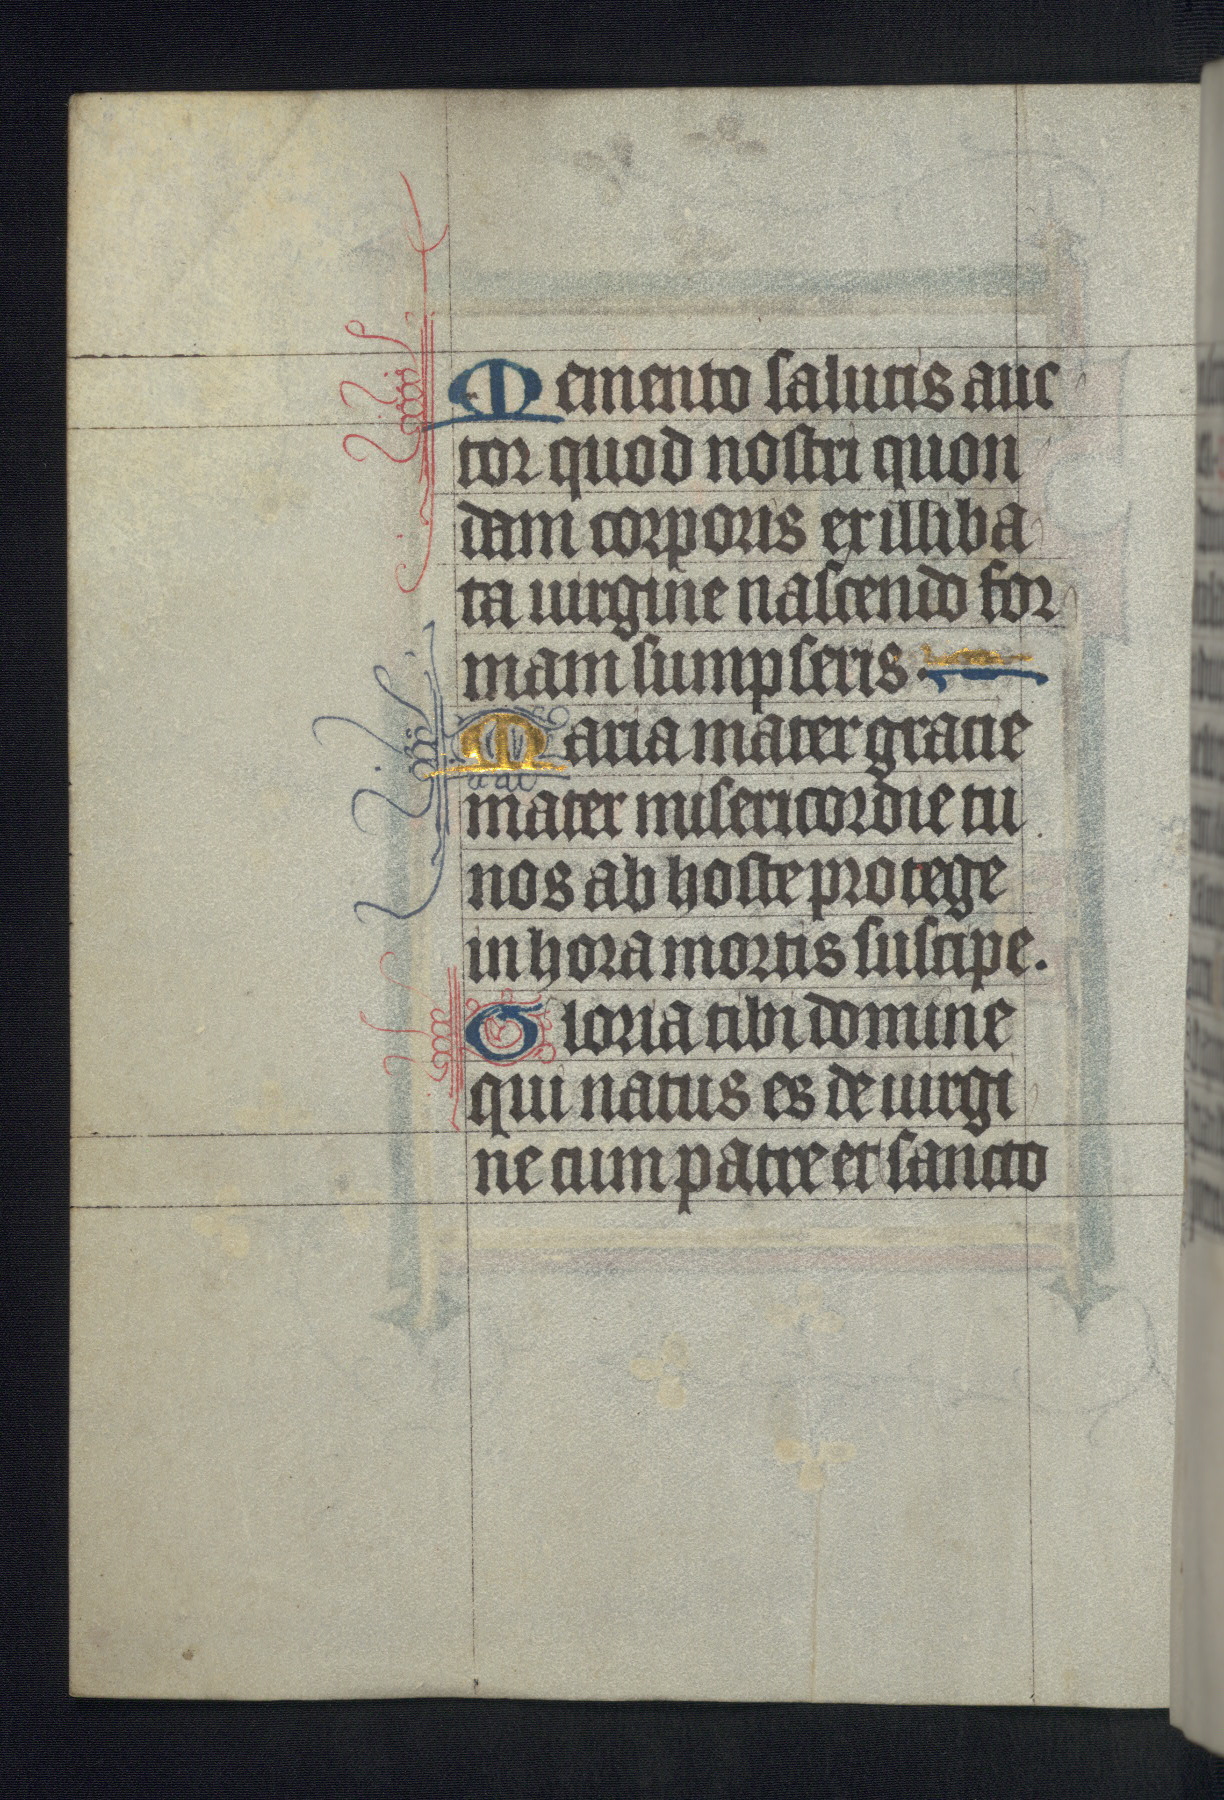 Memento salutis auc
tor quod nostri quon
dam corporis ex illiba
ta uirgine nascendo for
mam sumpseris.
Maria mater gratie
mater misericordie tu
nos ab hoste protege
in hora mortis suscipe.
Gloria tibi domine
qui natus es de uirgi
ne cum patre et sancto